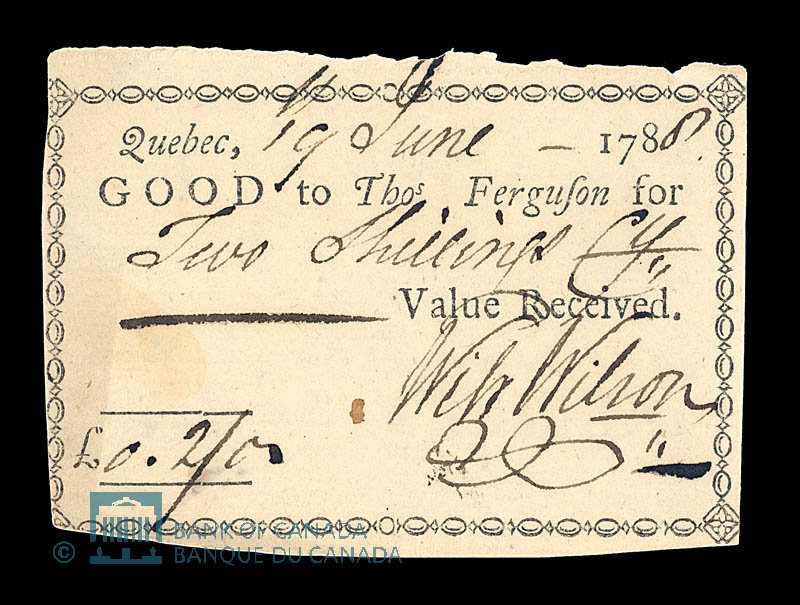 Quebec, 19 June – 1788
GOOD to Thos Ferguſon for
Two Shillings Cy
Value Received.
Willm Wilson
£0.2/0
© BANK OF CANADA
BANQUE DU CANADA